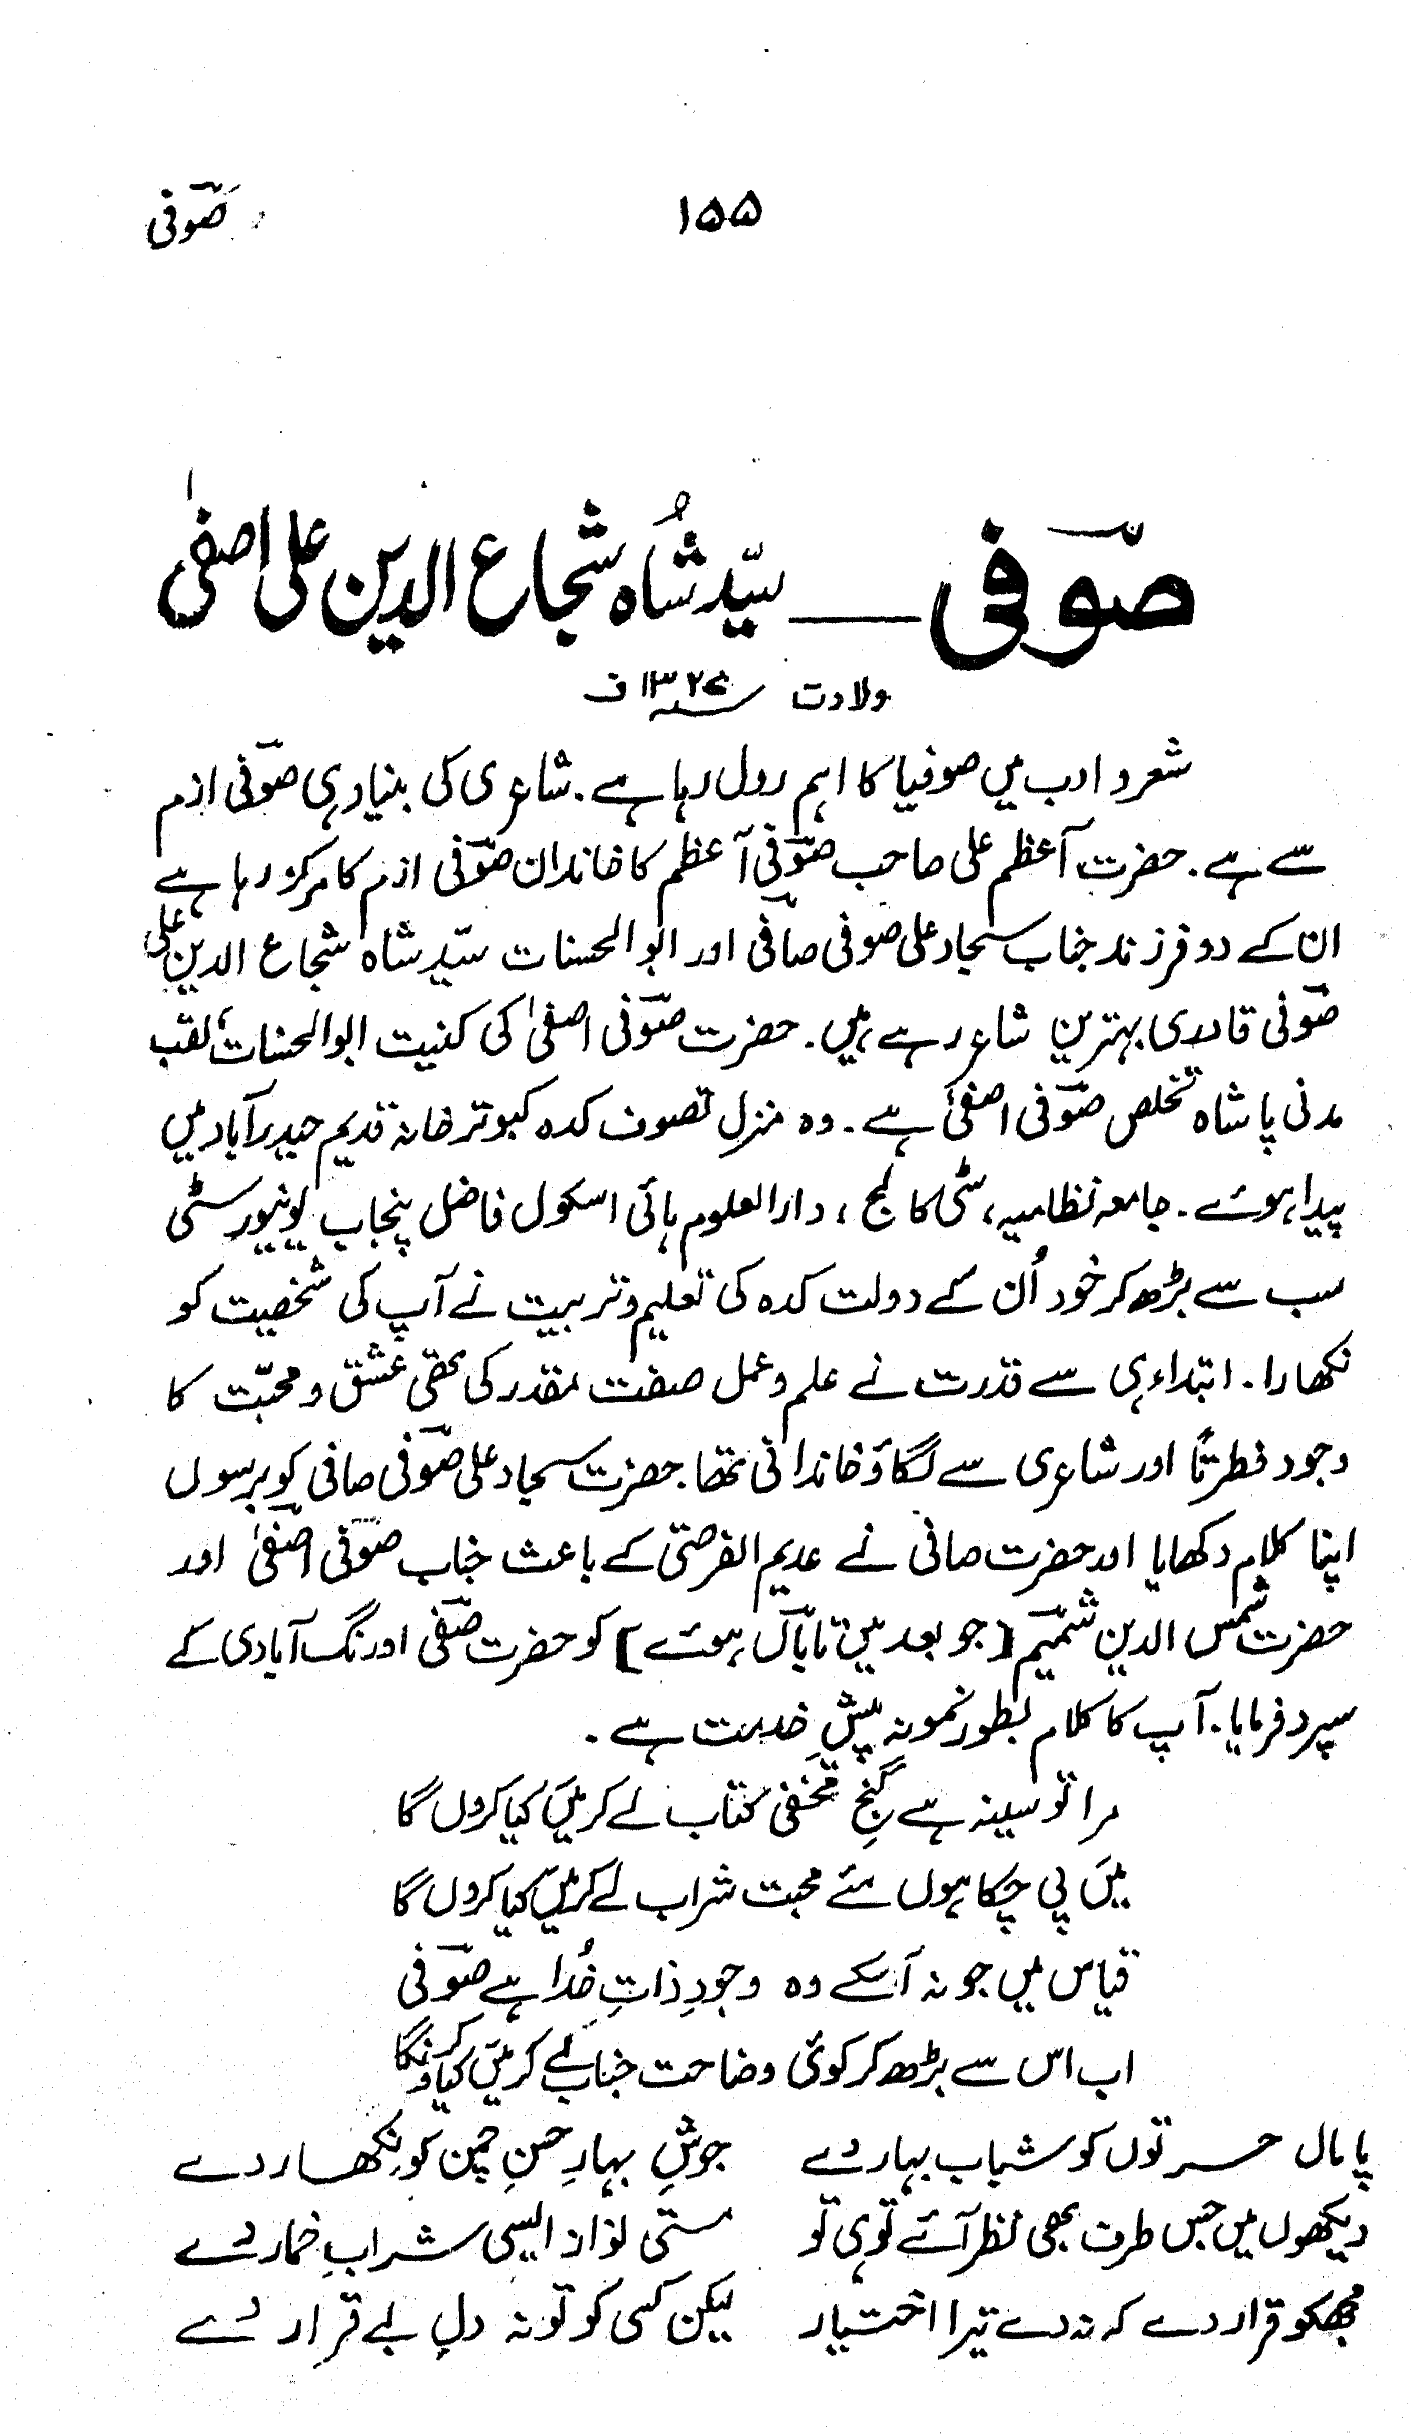 ۱۵۵ صوفی
صوفی — سیّد شاہ شجاع الدین علی اصفیٰ
ولادت ۱۳۲۵ ف
شعر و ادب میں صوفیا کا اہم رول رہا ہے۔ شاعری کی بنیاد ہی صوفی ازم
سے ہے۔ حضرت آعظم علی صاحب صوفی آعظم کا خاندان صوفی ازم کا مرکز رہا ہے
ان کے دو فرزند جناب سجاد علی صوفی صافی اور ابوالحسنات سیّد شاہ شجاع الدین علی
صوفی قادری بہترین شاعر رہے ہیں۔ حضرت صوفی اصفیٰ کی کنیت ابوالحسنات، لقب
مدنی پاشاہ تخلص صوفی اصفیٰ ہے۔ وہ منزلِ تصوف کدہ کبوتر خانہ قدیم حیدرآباد میں
پیدا ہوئے۔ جامعہ نظامیہ، سٹی کالج، دارالعلوم ہائی اسکول فاضل پنجاب یونیورسٹی
سب سے بڑھ کر خود اُن کے دولت کدہ کی تعلیم و تربیت نے آپ کی شخصیت کو
نکھارا۔ ابتداء ہی سے قدرت نے علم و عمل صفت مقدر کی تھی عشق و محبّت کا
وجود فطرتاً اور شاعری سے لگاؤ خاندانی تھا۔ حضرت سجاد علی صوفی صافی کو برسوں
اپنا کلام دکھایا اور حضرت صافی نے عدیم الفرصتی کے باعث جناب صوفی اصفیٰ اور
حضرت شمس الدین شمیم [جو بعد میں تاباں ہوئے] کو حضرت صفی اورنگ آبادی کے
سپرد فرمایا۔ آپ کا کلام بطور نمونہ پیشِ خدمت ہے۔
مرا تو سینہ ہے گنجِ مخفی کتاب لے کر میں کیا کروں گا
میں پی چکا ہوں مئے محبت شراب لے کر میں کیا کروں گا
قیاس میں جو نہ آسکے وہ وجودِ ذاتِ خُدا ہے صوفی
اب اس سے بڑھ کر کوئی وضاحت جناب لے کر میں کیا کرونگا
پامال حسرتوں کو شباب بہار دے جوشِ بہارِ حسنِ چمن کو نکھار دے
دیکھوں میں جس طرف بھی نظر آئے تو ہی تو مستی نواز ایسی شرابِ خمار دے
مجھکو قرار دے کہ نہ دے تیرا اختیار لیکن کسی کو تو نہ دلِ بے قرار دے